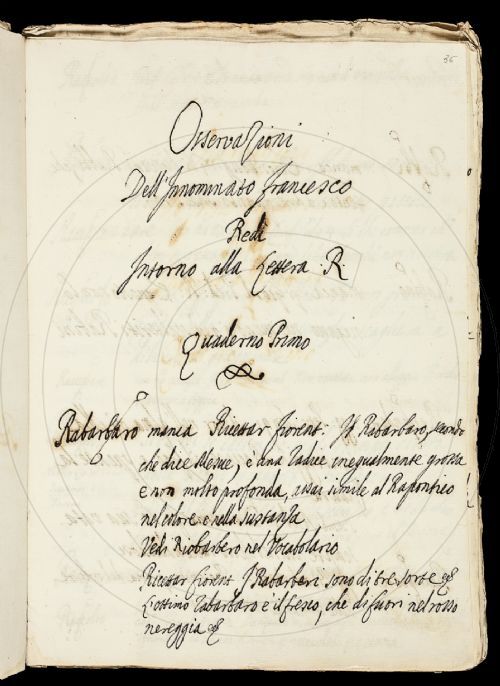 36
Osservazioni
Dell'Innominato Francesco
Redi
Intorno alla Lettera R.
Quaderno Primo
Rabarbaro manca Ricettar fiorent: Il Rabarbaro, secondo
che dice Mesue, è una radice inegualmente grossa
e non molto profonda, assai simile al Rapontico
nel colore e nella sustanza
Vedi Riobarbero nel Vocabolario
Ricettar fiorent I Rabarberi sono di tre sorte &c
L'ottimo rabarbaro è il fresco, che di fuori nel rosso
nereggia &c